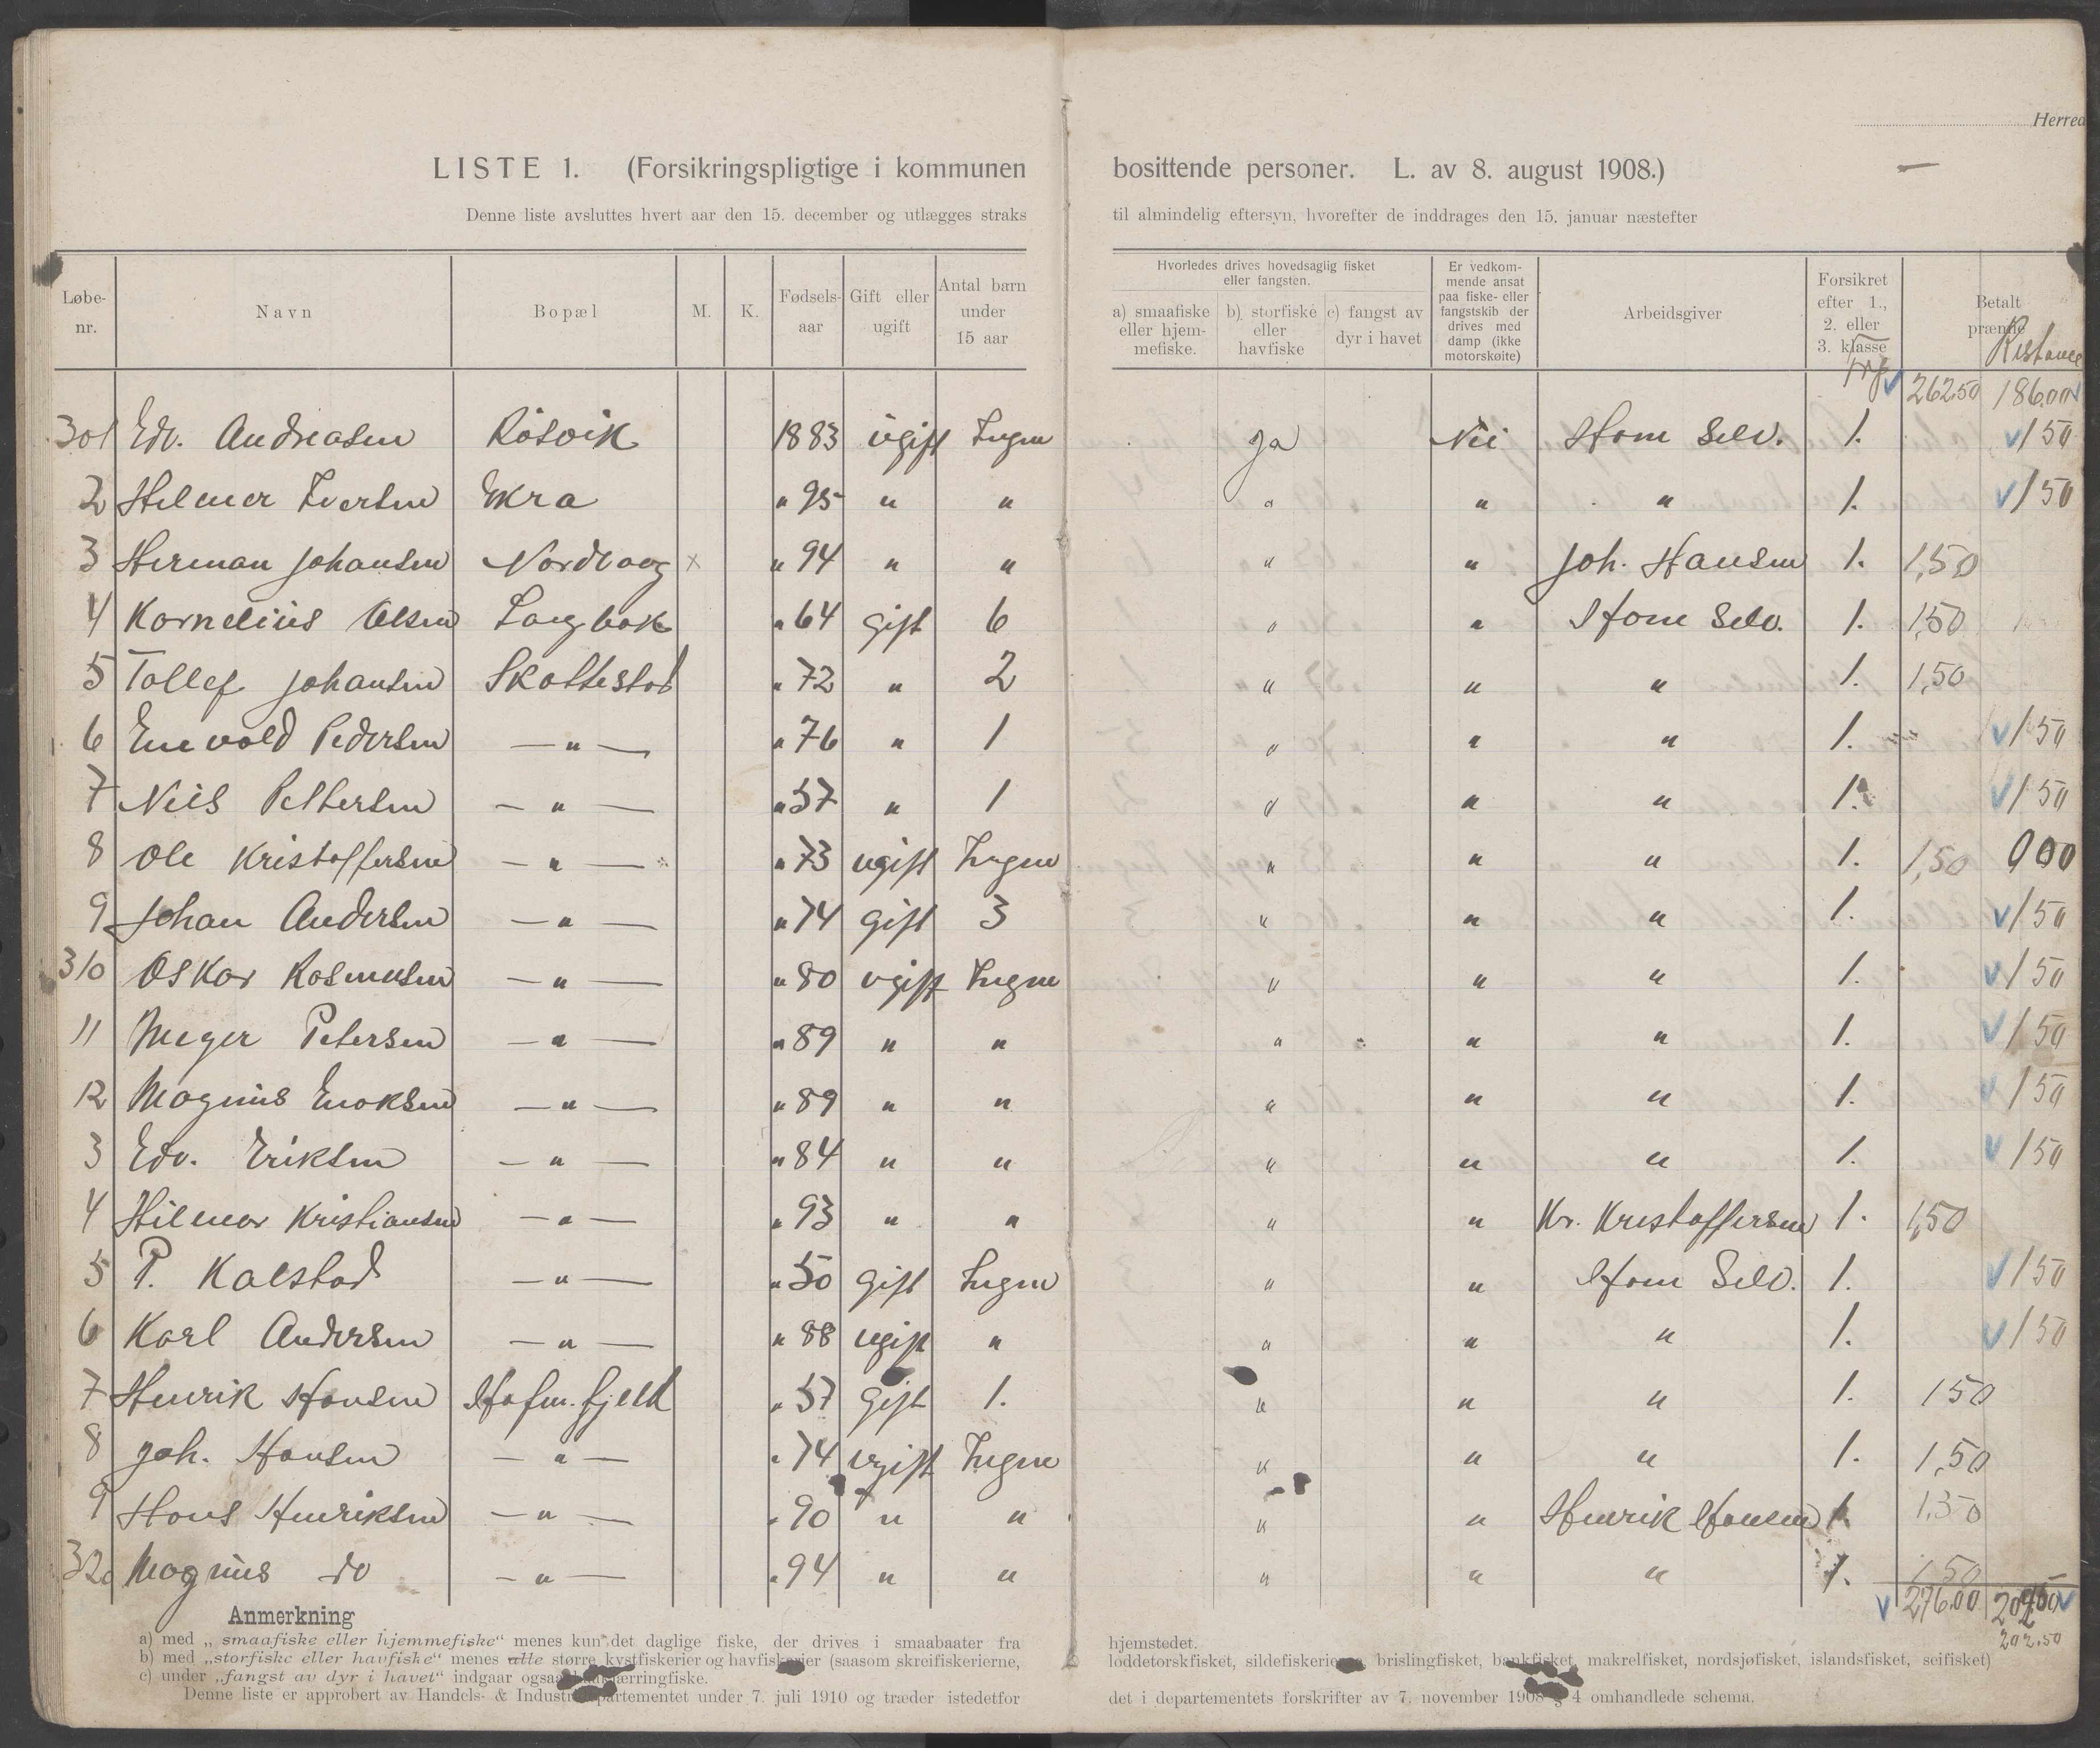 Herred
LISTE 1. (Forsikringspligtige i kommunen bosittende personer. L. av 8. august 1908.)
Denne liste avsluttes hvert aar den 15. december og utlægges straks til almindelig eftersyn, hvorefter de inddrages den 15. januar næstefter
Løbe-nr. Navn Bopæl M. K. Fødsels-aar Gift eller ugift Antal barn under 15 aar Hvorledes drives hovedsaglig fisket eller fangsten. a) smaafiske eller hjem-mefiske. b) storfiske eller havfiske c) fangst av dyr i havet Er vedkom-mende ansat paa fiske- eller fangstskib der drives med damp (ikke motorskøite) Arbeidsgiver Forsikret efter 1., 2. eller 3. klasse Betalt præmie Restance
Trf 262,50 186,00
301 Edv. Andreasen Røsvik 1883 ugift Ingen Ja Nei Ham Selv. 1. 1 50
2 Hilmer Iversen Ekra " 95 " " " " " 1. 1 50
3 Herman Johansen Nordvaag x " 94 " " " " Joh. Hansen 1. 1,50
4 Kornelius Olsen Langbak " 64 gift 6 " " Ham Selv. 1. 1,50
5 Tollef Johansen Skottestad " 72 " 2 " " " 1. 1,50
6 Enevold Pedersen — " — " 76 " 1 " " " 1. 1 50
7 Neis Pettersen — " — " 57 " 1 " " " 1. 1 50
8 Ole Kristoffersen — " — " 73 ugift Ingen " " " 1. 1,50 000
9 Johan Andersen — " — " 74 gift 3 " " " 1. 1 50
310 Oskar Rasmusen — " — " 80 ugift Ingen " " " 1. 1 50
11 Meyer Petersen — " — " 89 " " " " " 1. 1 50
12 Magnus Enoksen — " — " 89 " " " " " 1. 1 50
3 Edv. Eriksen — " — " 84 " " " " " 1. 1 50
4 Hilmar Kristiansen — " — " 93 " " " " Kr. Kristoffersen 1. 1,50
5 P. Kalstad — " — " 50 gift Ingen " " Ham Selv. 1. 1 50
6 Karl Andersen — " — " 88 ugift " " " " 1. 1 50
7 Henrik Hansen Hafn.fjeld " 57 gift 1. " " " 1. 1 50
8 Joh. Hansen — " — " 74 ugift Ingen " " " 1. 1,50
9 Hans Henriksen — " — " 90 " " " " Henrik Hansen 1. 1,50
320 Magnus do — " — " 94 " " " " " 1. 1 50
276,00
202,50
Anmerkning
a) med „smaafiske eller hjemmefiske“ menes kun det daglige fiske, der drives i smaabaater fra hjemstedet.
b) med „storfiske eller havfiske“ menes alle større kystfiskerier og havfiskerier (saasom skreifiskerierne, loddetorskfisket, sildefiskerierne, brislingfisket, bankfisket, makrelfisket, nordsjøfisket, islandsfisket, seifisket)
c) under „fangst av dyr i havet“ indgaar ogsaa haakjærringfiske.
Denne liste er approbert av Handels- & Industridepartementet under 7. juli 1910 og træder istedetfor det i departementets forskrifter av 7. november 1908 § 4 omhandlede schema.